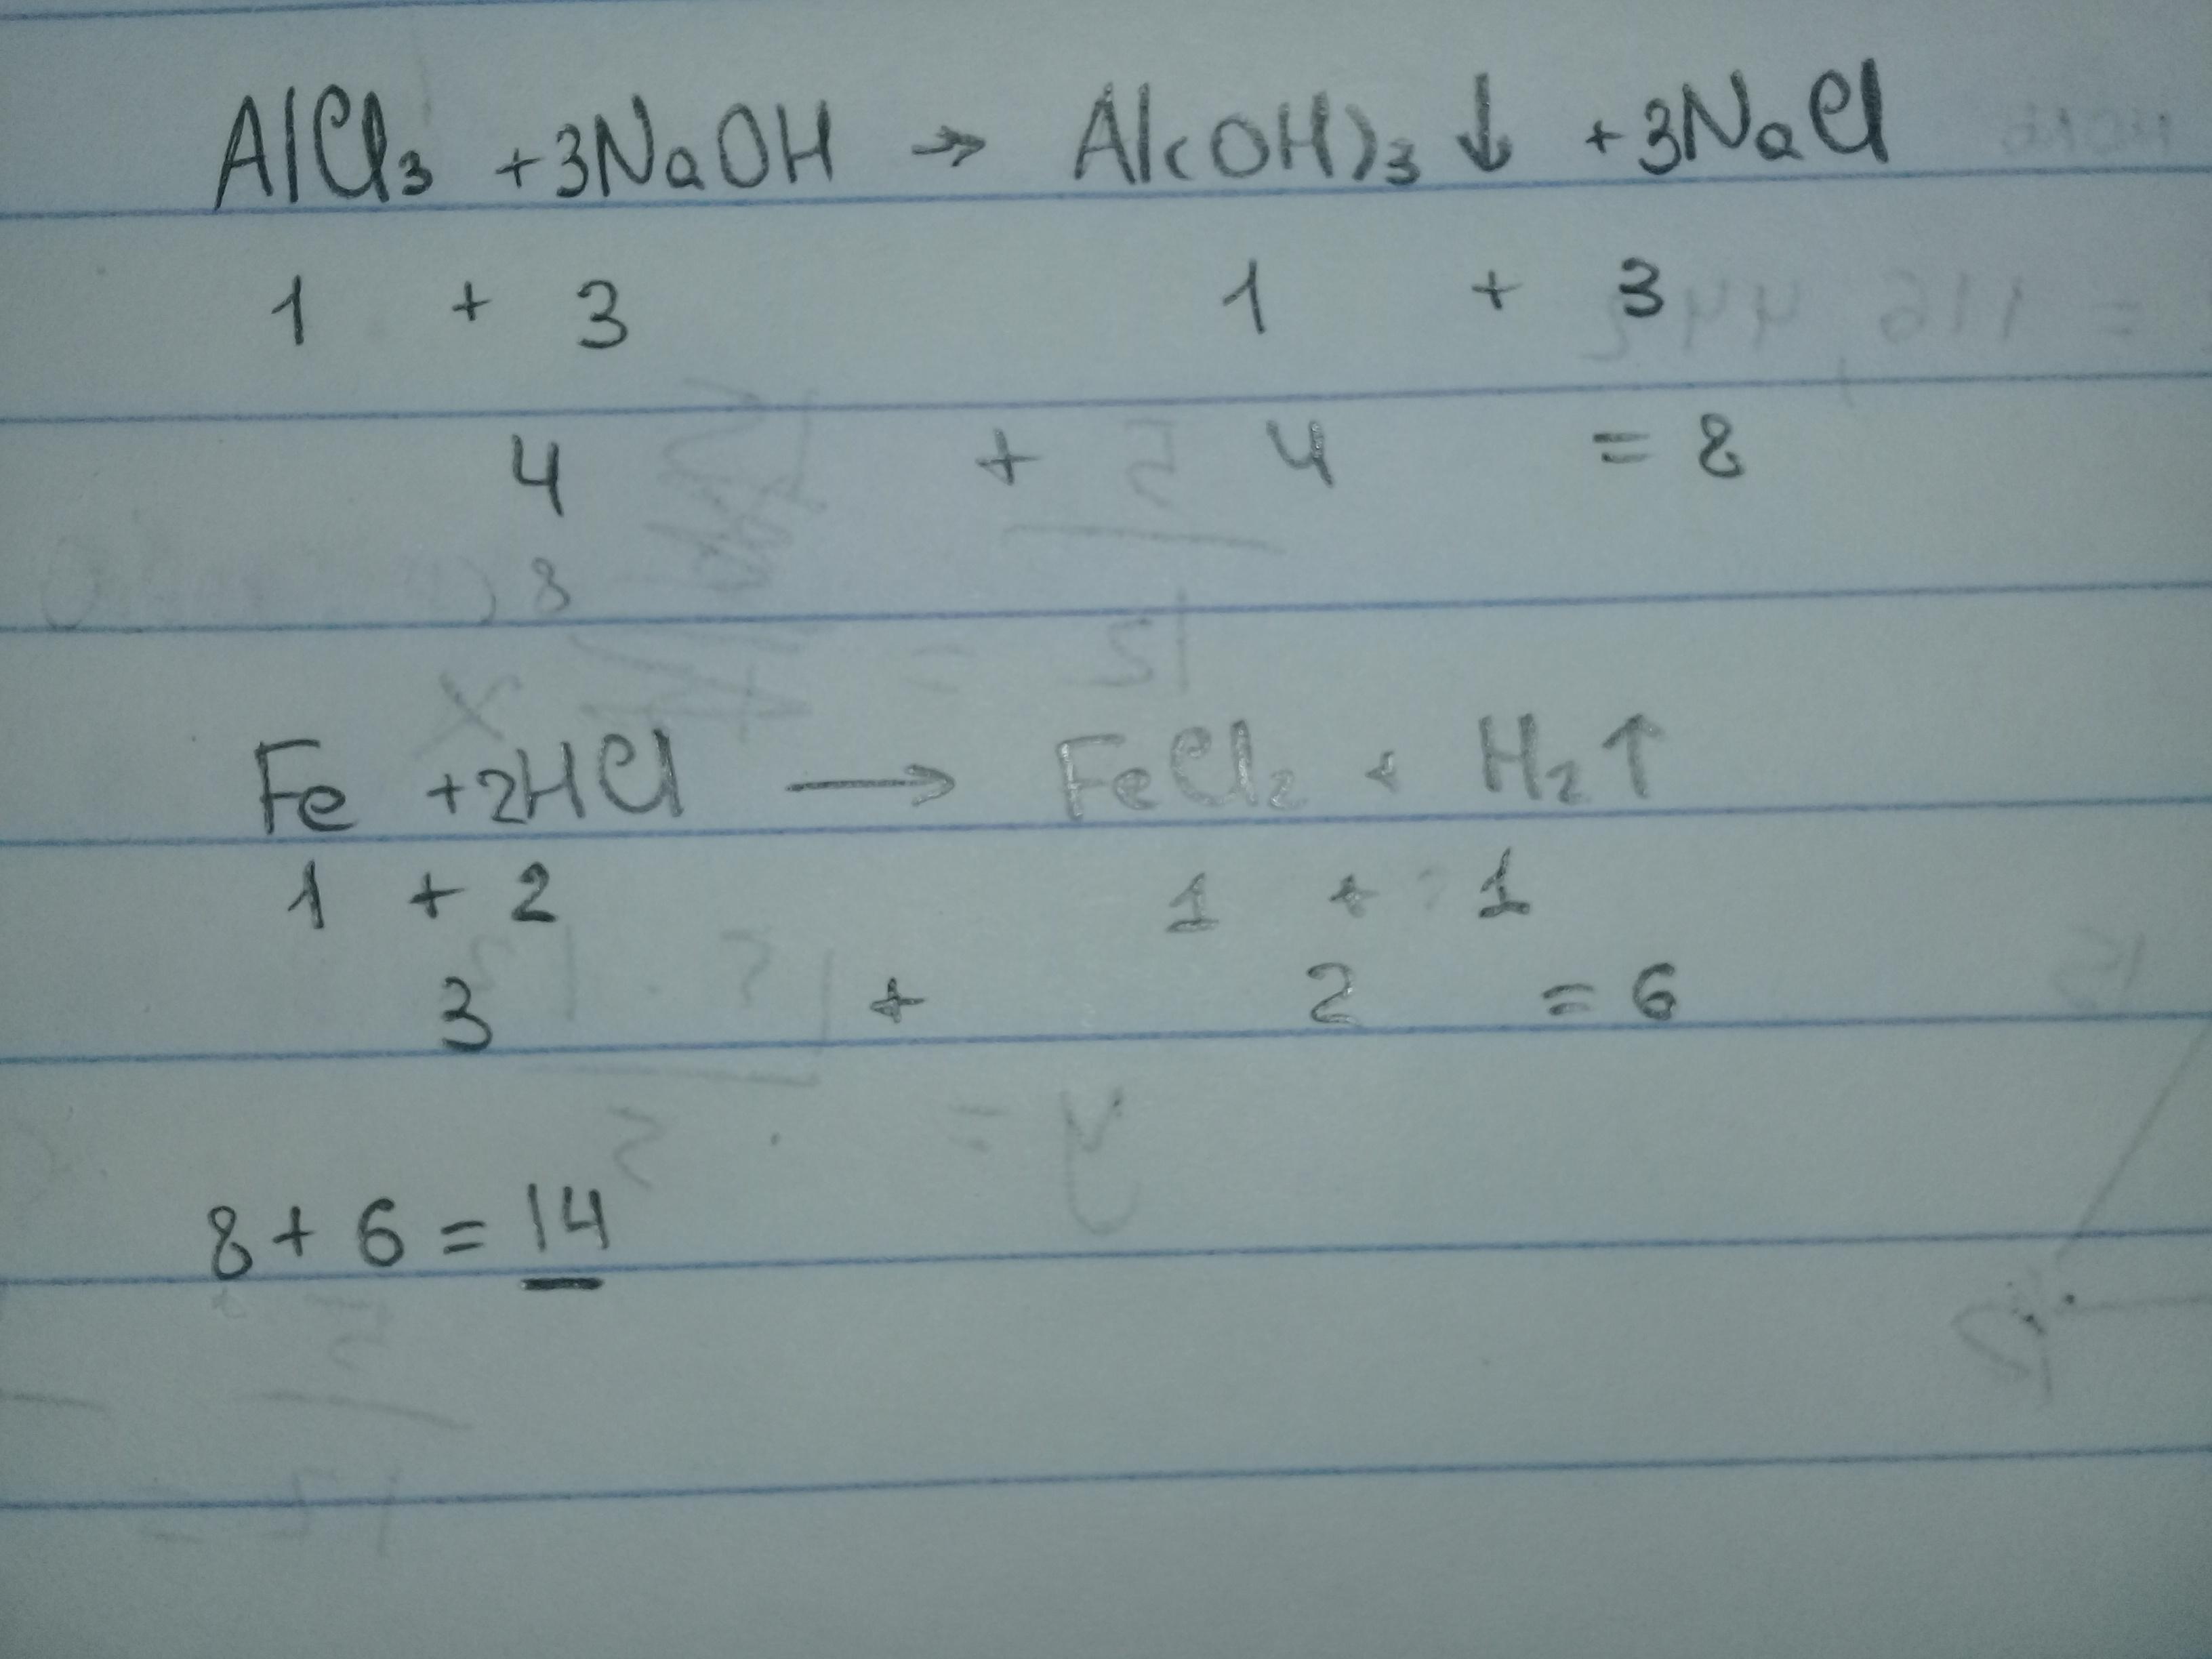 AlCl3 +3NaOH → Al(OH)3↓ +3NaCl
1 + 3 1 + 3
4 + 4 = 8
8
Fe +2HCl → FeCl2 + H2↑
1 + 2 1 + 1
3 + 2 = 6
8 + 6 = 14